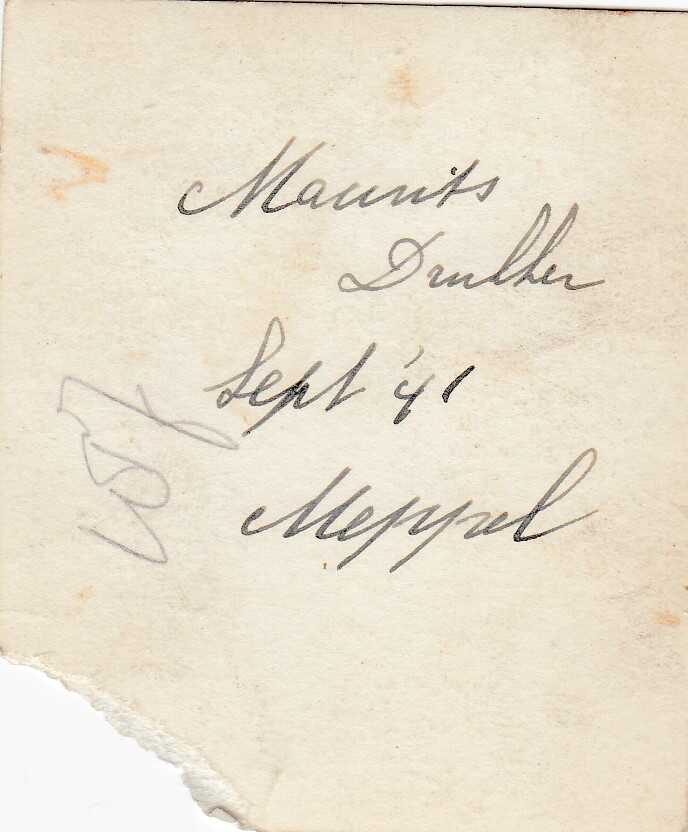 Maurits
Drukker
Sept '41
Meppel